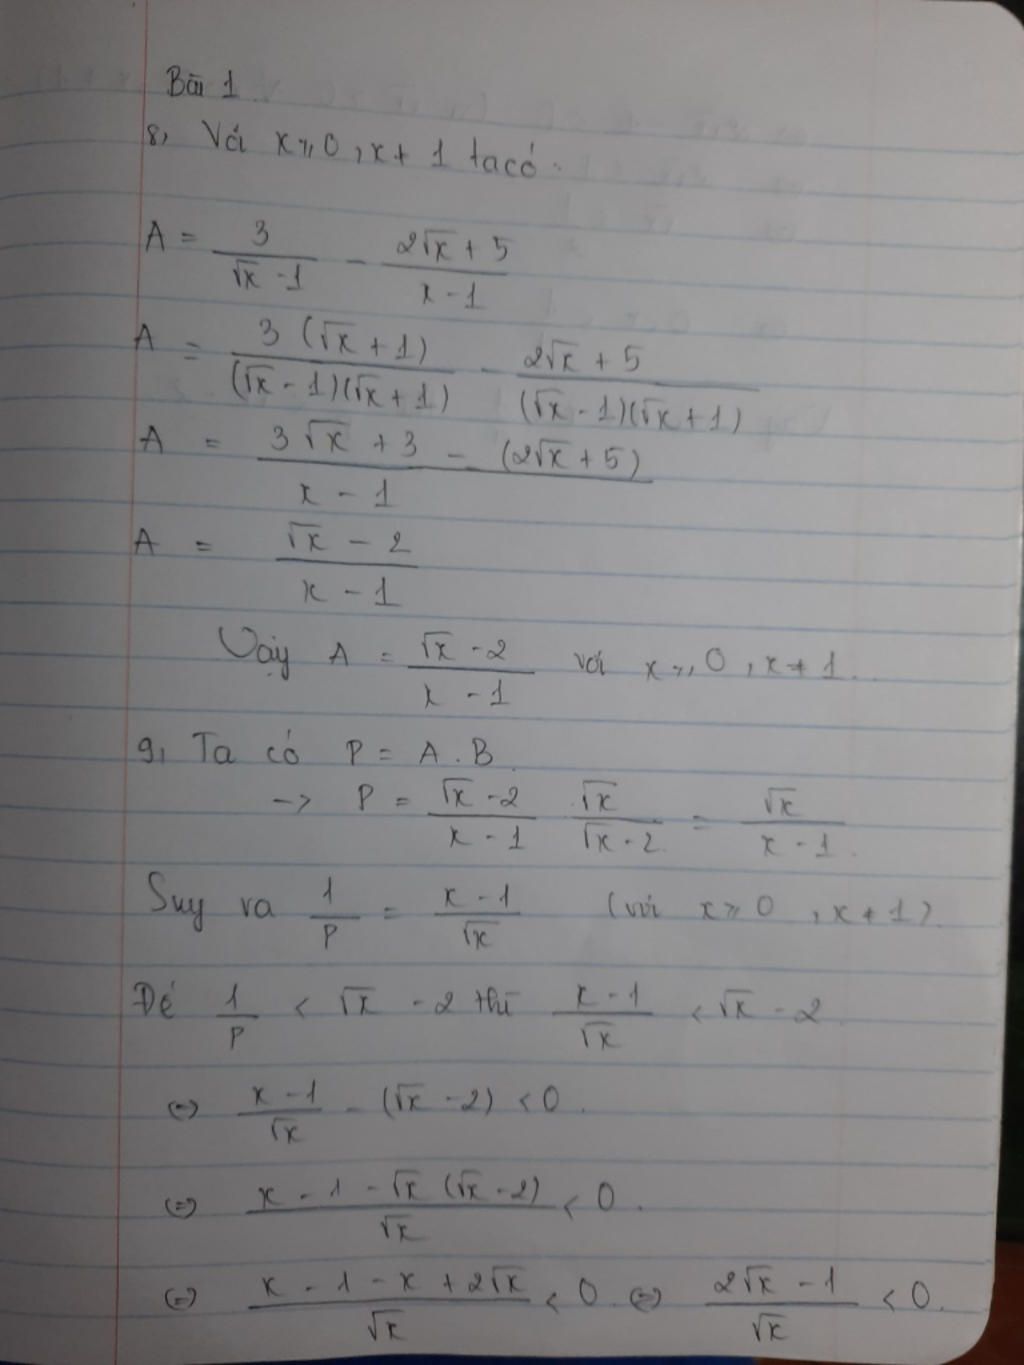 Bài 1
8, Với x ≥ 0, x ≠ 1 ta có.
A = 3/(√x - 1) - (2√x + 5)/(x - 1)
A = 3(√x + 1)/((√x - 1)(√x + 1)) - (2√x + 5)/((√x - 1)(√x + 1))
A = (3√x + 3 - (2√x + 5))/(x - 1)
A = (√x - 2)/(x - 1)
Vậy A = (√x - 2)/(x - 1) với x ≥ 0, x ≠ 1.
9, Ta có P = A . B
-> P = (√x - 2)/(x - 1) . √x/(√x - 2) = √x/(x - 1).
Suy ra 1/P = (x - 1)/√x (với x ≥ 0, x ≠ 1)
Để 1/P < √x - 2 thì (x - 1)/√x < √x - 2
⇔ (x - 1)/√x - (√x - 2) < 0.
⇔ (x - 1 - √x(√x - 2))/√x < 0.
⇔ (x - 1 - x + 2√x)/√x < 0 ⇔ (2√x - 1)/√x < 0.